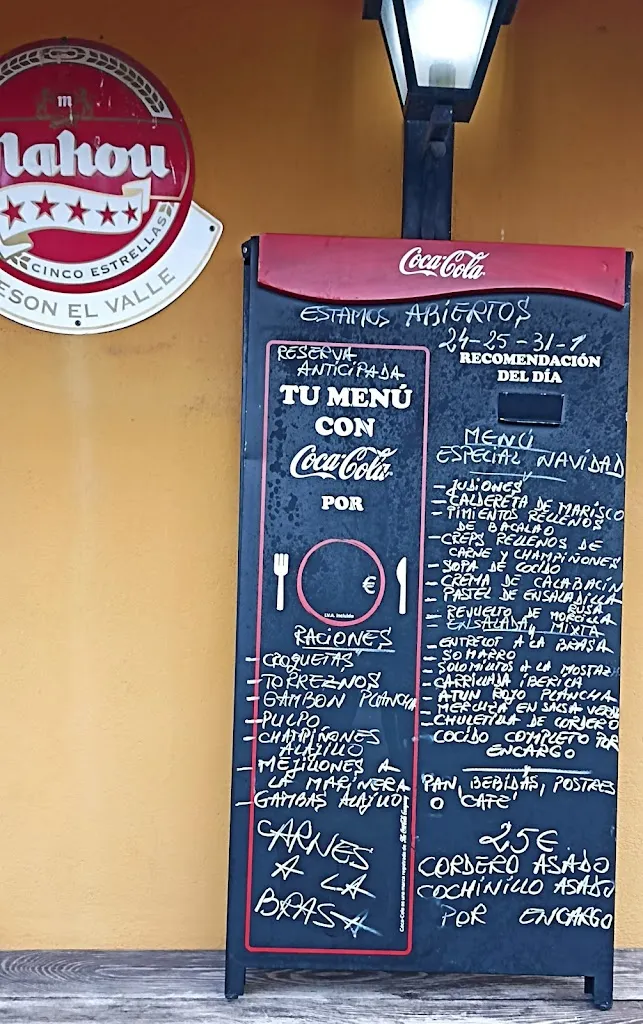 m
Mahou
CINCO ESTRELLAS
MESON EL VALLE
Coca-Cola
ESTAMOS ABIERTOS
24-25-31-1
RESERVA
ANTICIPADA
TU MENÚ
CON
Coca-Cola
POR
€
I.V.A. incluido
RACIONES
- CROQUETAS
- TORREZNOS
- GAMBON PLANCHA
- PULPO
- CHAMPIÑONES
AL AJILLO
- MEJILLONES A
LA MARINERA
- GAMBAS AL AJILLO
CARNES
A LA
BRASA
RECOMENDACIÓN
DEL DÍA
MENÚ
ESPECIAL NAVIDAD
- JUDIONES
- CALDERETA DE MARISCO
- PIMIENTOS RELLENOS
DE BACALAO
- CREPS RELLENOS DE
CARNE Y CHAMPIÑONES
- SOPA DE COCIDO
- CREMA DE CALABACÍN
- PASTEL DE ENSALADILLA
RUSA
- REVUELTO DE MORCILLA
- ENSALADA MIXTA
- ENTRECOT A LA BRASA
- SOMARRO
- SOLOMILLOS A LA MOSTAZA
- CARRILLADA IBERICA
- ATUN ROJO PLANCHA
- MERLUZA EN SALSA VERDE
- CHULETILLA DE CORDERO
COCIDO COMPLETO POR
ENCARGO
PAN, BEBIDAS, POSTRES
O CAFÉ
25€
CORDERO ASADO
COCHINILLO ASADO
POR ENCARGO